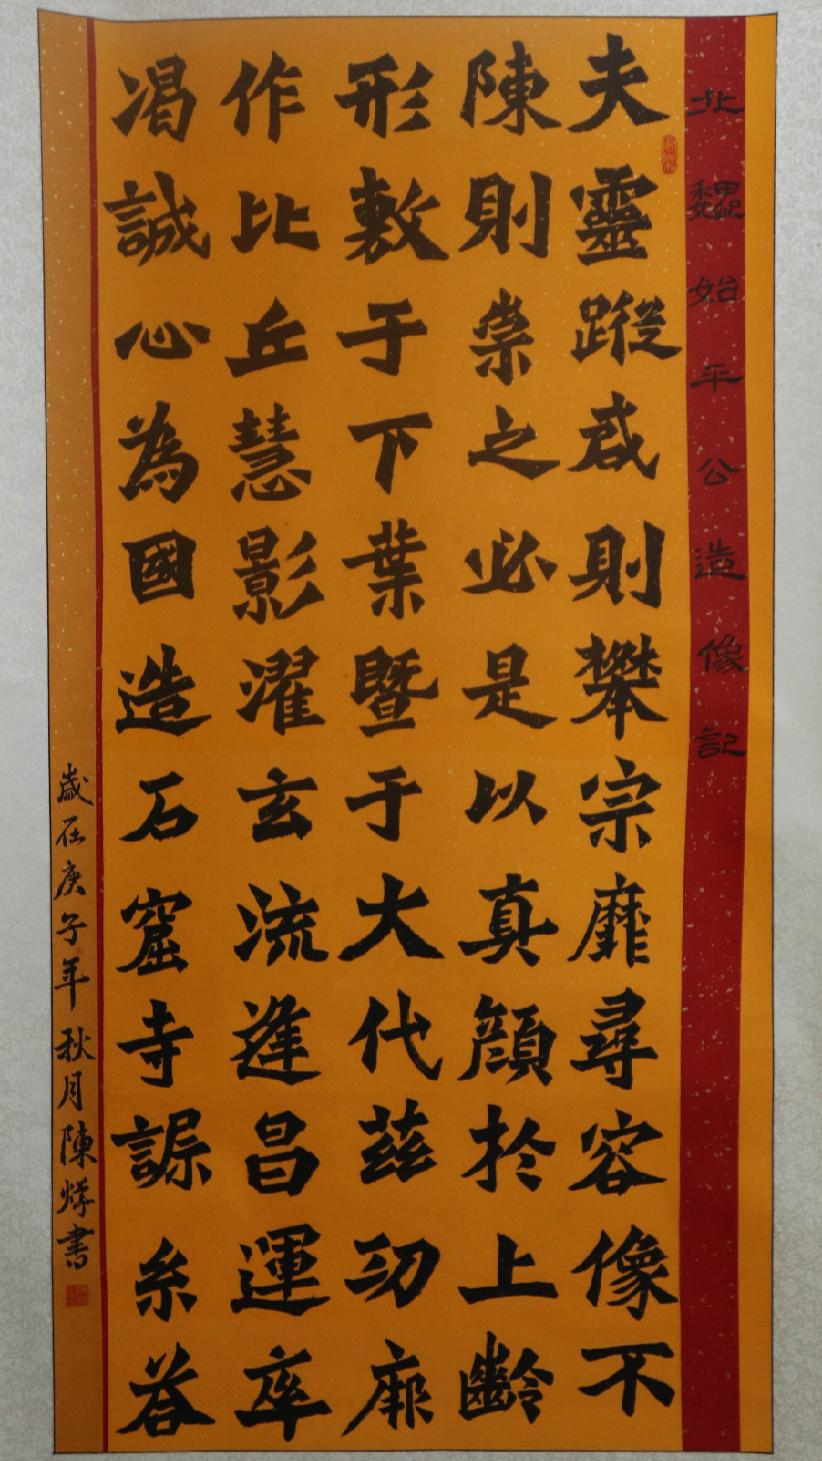 北魏始平公造像記
夫靈蹤咸則攀宗靡尋容像不
陳則崇之必是以真顏於上齡
形敷于下葉暨于大代茲功厥
作比丘慧影濯玄流逢昌運率
渴誠心為國造石窟寺系答
歲在庚子年秋月陳書